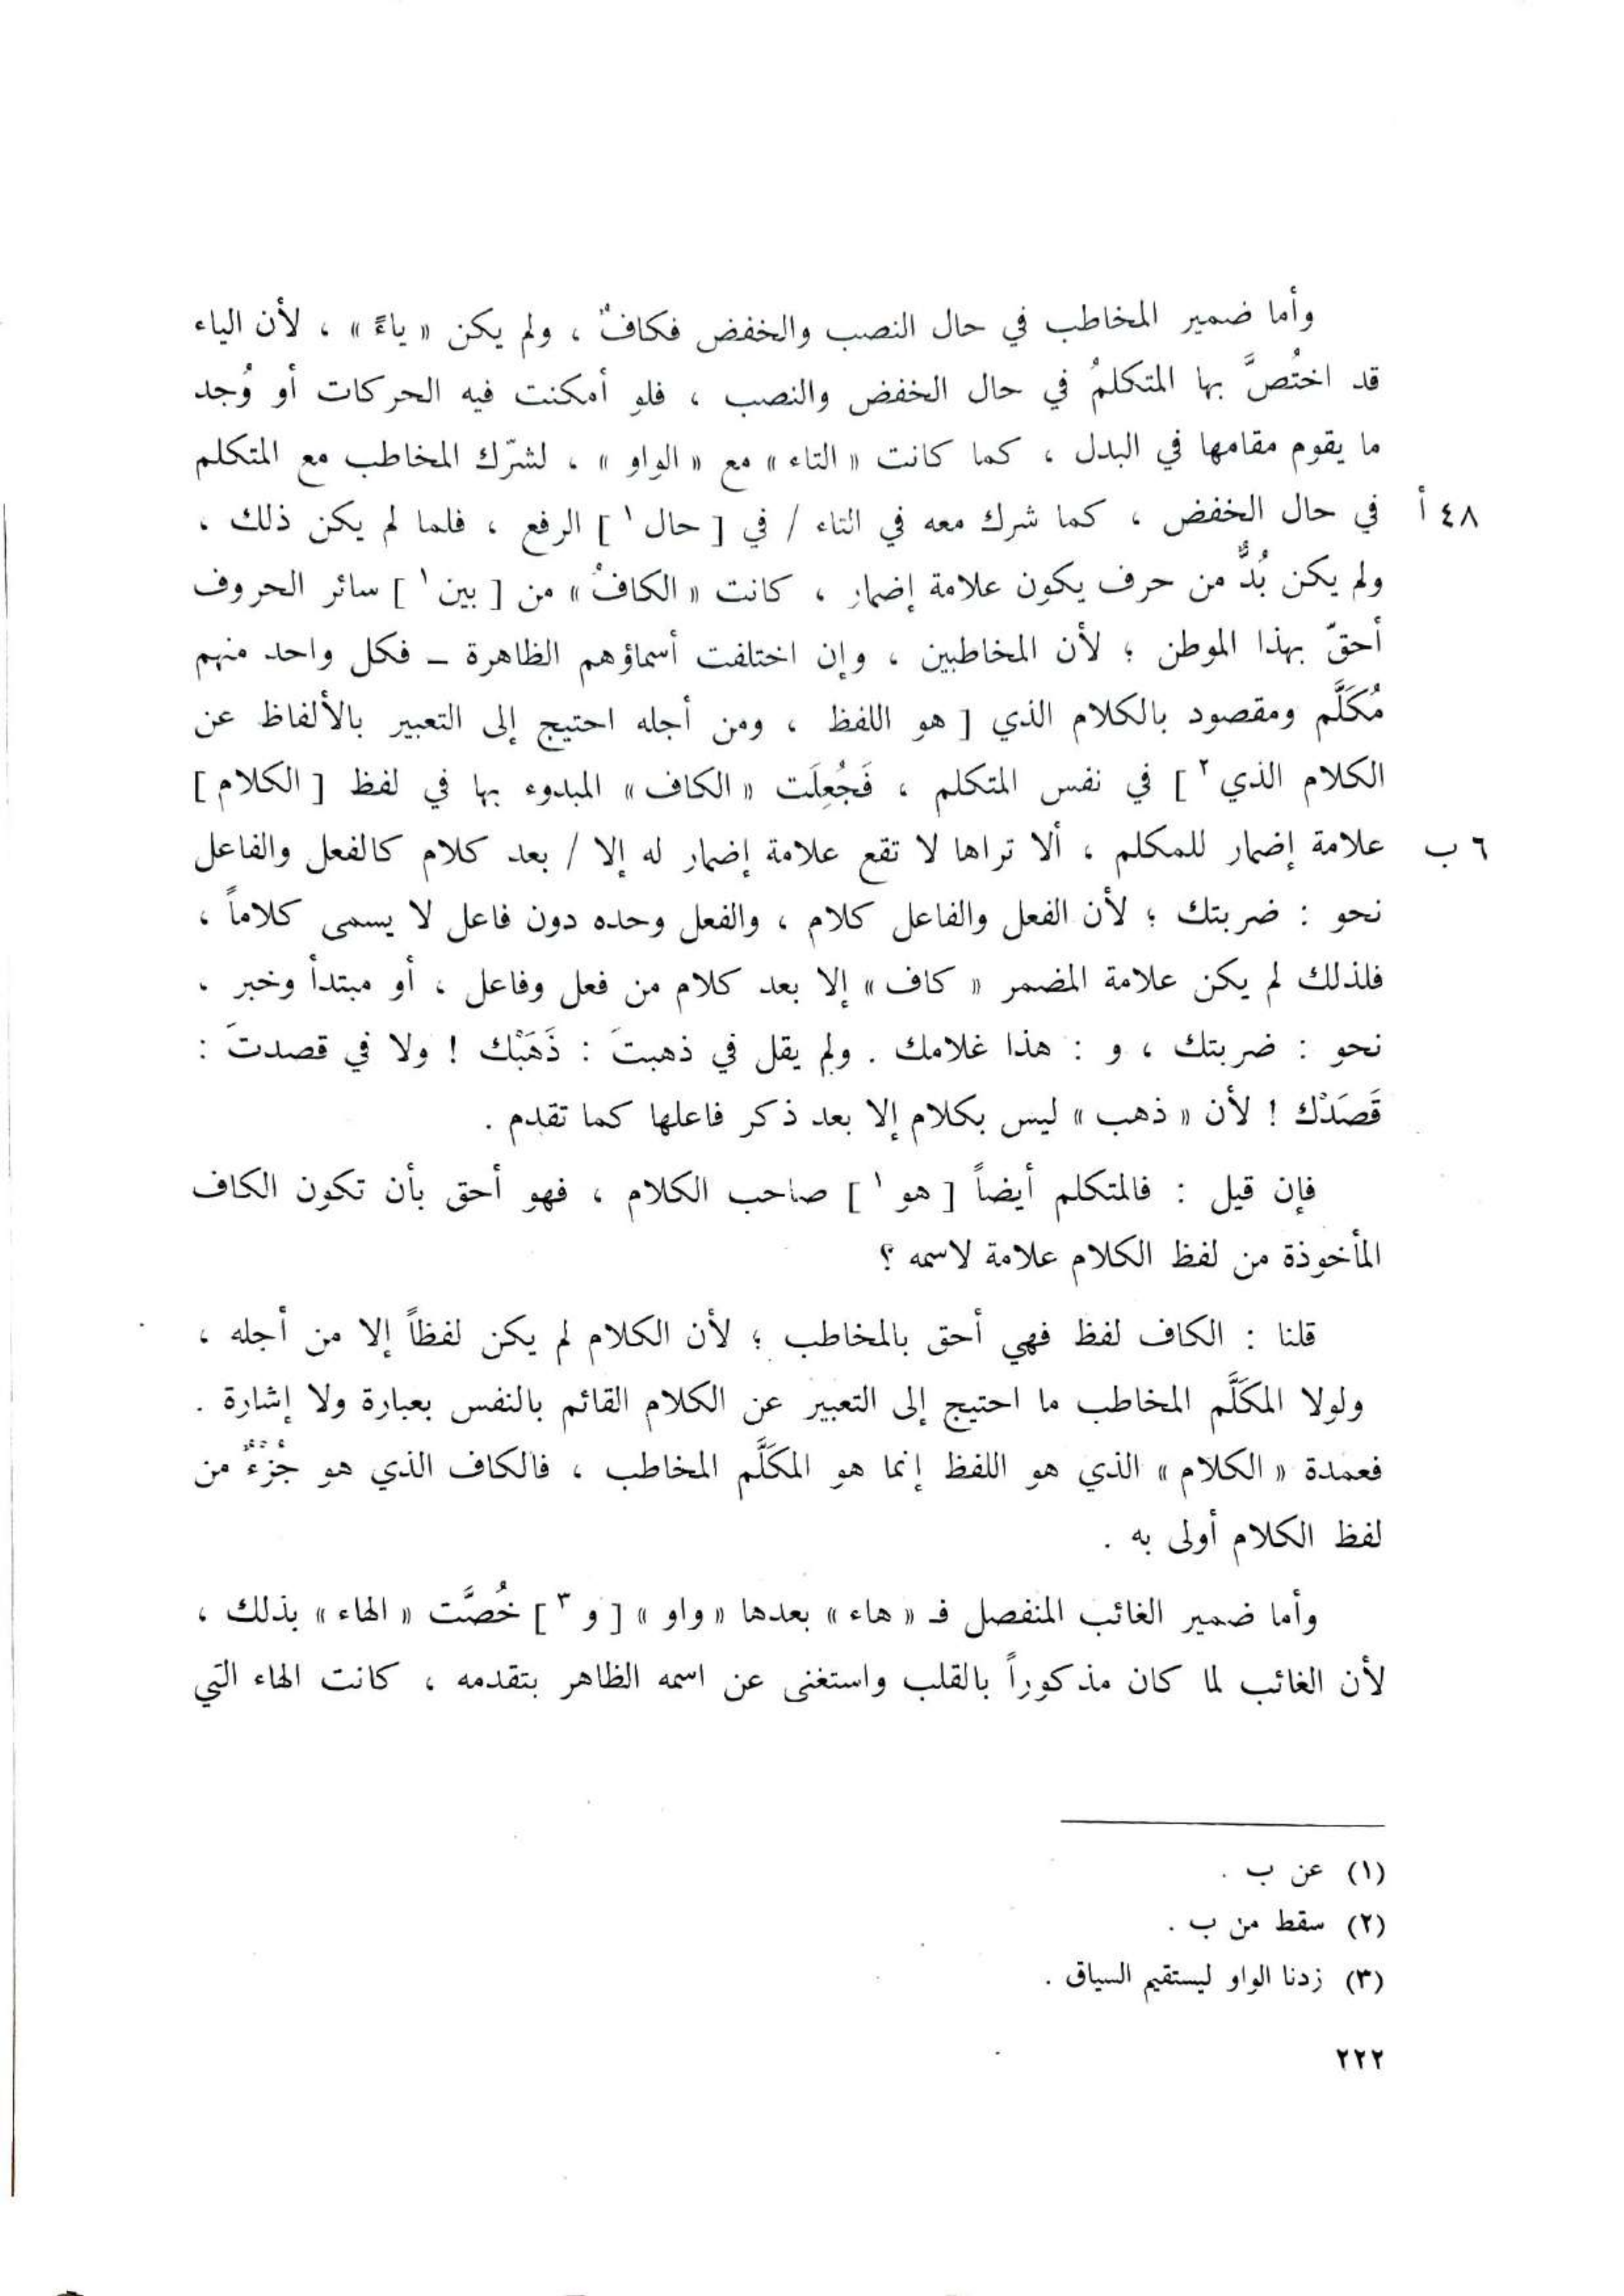 وأما ضمير المخاطب في حال النصب والخفض فكافٌ ، ولم يكن « ياءً » ، لأن الياء
قد اختُصَّ بها المتكلمُ في حال الخفض والنصب ، فلو أمكنت فيه الحركات أو وُجد
ما يقوم مقامها في البدل ، كما كانت « التاء » مع « الواو » ، لشرّك المخاطب مع المتكلم
٤٨ أ في حال الخفض ، كما شرك معه في التاء / في [ حال ١ ] الرفع ، فلما لم يكن ذلك ،
ولم يكن بُدٌّ من حرف يكون علامة إضمار ، كانت « الكافُ » من [ بين ١ ] سائر الحروف
أحقّ بهذا الموطن ؛ لأن المخاطبين ، وإن اختلفت أسماؤهم الظاهرة – فكل واحد منهم
مُكَلَّم ومقصود بالكلام الذي [ هو اللفظ ، ومن أجله احتيج إلى التعبير بالألفاظ عن
الكلام الذي ٢ ] في نفس المتكلم ، فَجُعِلَت « الكاف » المبدوء بها في لفظ [ الكلام ]
٦ ب علامة إضمار للمكلم ، ألا تراها لا تقع علامة إضمار له إلا / بعد كلام كالفعل والفاعل
نحو : ضربتك ؛ لأن الفعل والفاعل كلام ، والفعل وحده دون فاعل لا يسمى كلاماً ،
فلذلك لم يكن علامة المضمر « كاف » إلا بعد كلام من فعل وفاعل ، أو مبتدأ وخبر .
نحو : ضربتك ، و : هذا غلامك . ولم يقل في ذهبتَ : ذَهَبْك ! ولا في قصدتَ :
قَصَدْك ! لأن « ذهب » ليس بكلام إلا بعد ذكر فاعلها كما تقدم .
فإن قيل : فالمتكلم أيضاً [ هو ١ ] صاحب الكلام ، فهو أحق بأن تكون الكاف
المأخوذة من لفظ الكلام علامة لاسمه ؟
قلنا : الكاف لفظ فهي أحق بالمخاطب ؛ لأن الكلام لم يكن لفظاً إلا من أجله ،
ولولا المكَلَّم المخاطب ما احتيج إلى التعبير عن الكلام القائم بالنفس بعبارة ولا إشارة .
فعمدة « الكلام » الذي هو اللفظ إنما هو المكَلَّم المخاطب ، فالكاف الذي هو جُزْءٌ من
لفظ الكلام أولى به .
وأما ضمير الغائب المنفصل فـ « هاء » بعدها « واو » [ و ٣ ] خُصَّت « الهاء » بذلك ،
لأن الغائب لما كان مذكوراً بالقلب واستغنى عن اسمه الظاهر بتقدمه ، كانت الهاء التي
(١) عن ب .
(٢) سقط من ب .
(٣) زدنا الواو ليستقيم السياق .
٢٢٢